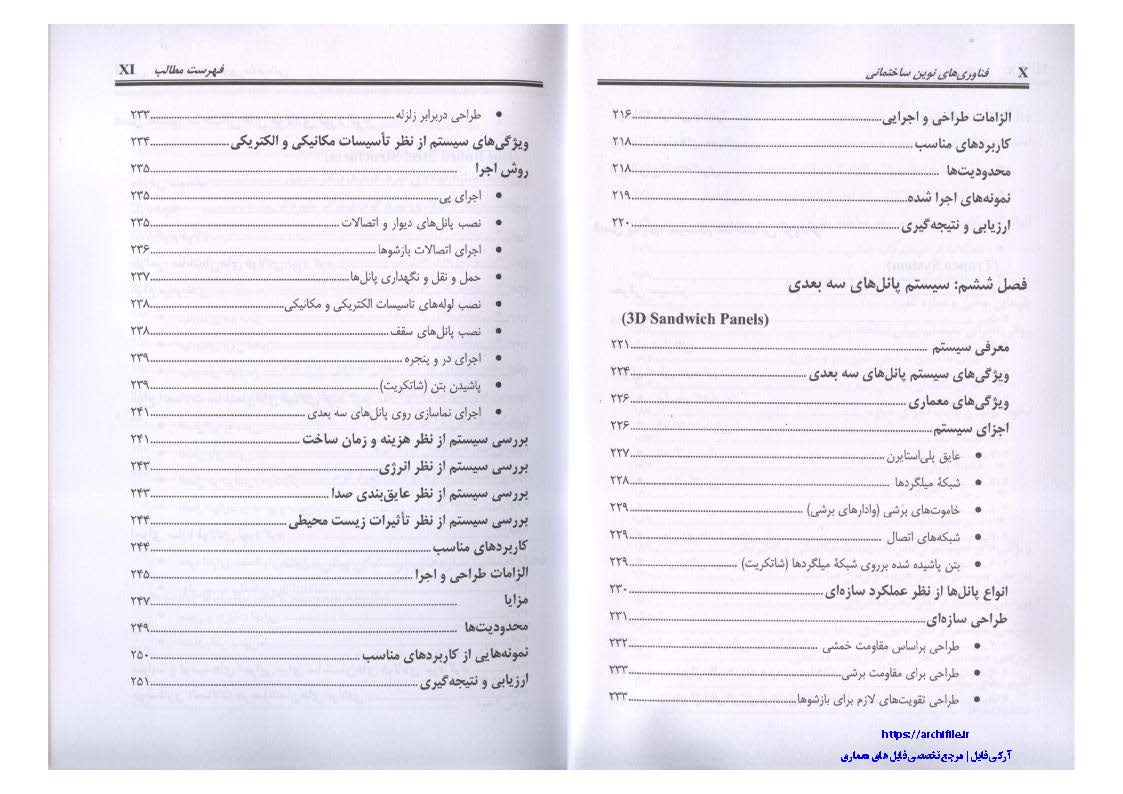 X فناوری‌های نوین ساختمانی
الزامات طراحی و اجرایی ۲۱۶
کاربردهای مناسب ۲۱۸
محدودیت‌ها ۲۱۸
نمونه‌های اجرا شده ۲۱۹
ارزیابی و نتیجه‌گیری ۲۲۰
فصل ششم: سیستم پانل‌های سه بعدی
(3D Sandwich Panels)
معرفی سیستم ۲۲۱
ویژگی‌های سیستم پانل‌های سه بعدی ۲۲۴
ویژگی‌های معماری ۲۲۶
اجزای سیستم ۲۲۶
• عایق پلی‌استایرن ۲۲۷
• شبکۀ میلگردها ۲۲۸
• خاموت‌های برشی (وادارهای برشی) ۲۲۹
• شبکه‌های اتصال ۲۲۹
• بتن پاشیده شده برروی شبکۀ میلگردها (شاتکریت) ۲۲۹
انواع پانل‌ها از نظر عملکرد سازه‌ای ۲۳۰
طراحی سازه‌ای ۲۳۱
• طراحی براساس مقاومت خمشی ۲۳۲
• طراحی برای مقاومت برشی ۲۳۳
• طراحی تقویت‌های لازم برای بازشوها ۲۳۳
https://archifile.ir
آرکی فایل | مرجع تخصصی فایل های معماری
فهرست مطالب XI
• طراحی دربرابر زلزله ۲۳۳
ویژگی‌های سیستم از نظر تأسیسات مکانیکی و الکتریکی ۲۳۴
روش اجرا ۲۳۵
• اجرای پی ۲۳۵
• نصب پانل‌های دیوار و اتصالات ۲۳۵
• اجرای اتصالات بازشوها ۲۳۶
• حمل و نقل و نگهداری پانل‌ها ۲۳۷
• نصب لوله‌های تاسیسات الکتریکی و مکانیکی ۲۳۸
• نصب پانل‌های سقف ۲۳۸
• اجرای در و پنجره ۲۳۹
• پاشیدن بتن (شاتکریت) ۲۳۹
• اجرای نماسازی روی پانل‌های سه بعدی ۲۴۱
بررسی سیستم از نظر هزینه و زمان ساخت ۲۴۱
بررسی سیستم از نظر انرژی ۲۴۳
بررسی سیستم از نظر عایق‌بندی صدا ۲۴۳
بررسی سیستم از نظر تأثیرات زیست محیطی ۲۴۴
کاربردهای مناسب ۲۴۴
الزامات طراحی و اجرا ۲۴۵
مزایا ۲۴۷
محدودیت‌ها ۲۴۹
نمونه‌هایی از کاربردهای مناسب ۲۵۰
ارزیابی و نتیجه‌گیری ۲۵۱